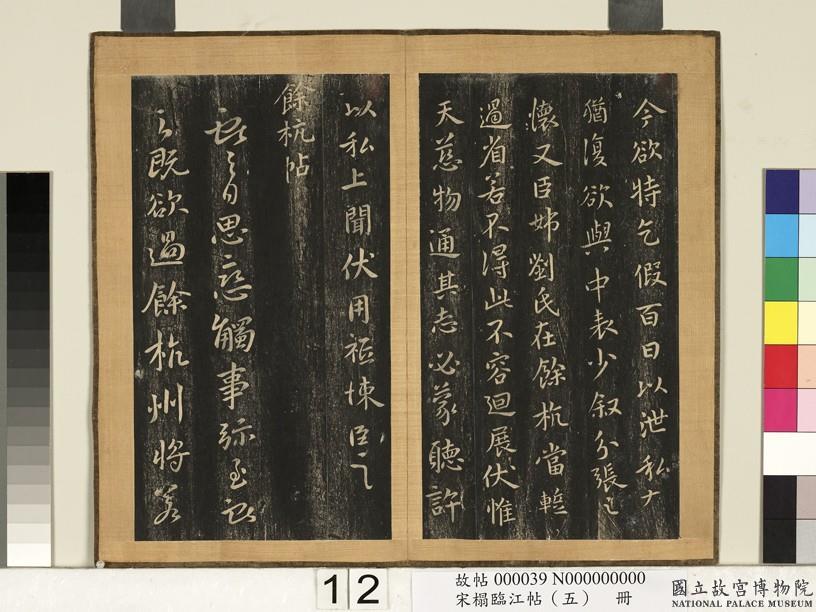 今欲特乞假百日以泄私
猶復欲與中表少叙分張之
懷又臣姊劉氏在餘杭當輒
過省若不得此不容迴展伏惟
天慈物通其志必蒙聽許
以私上聞伏用祗悚臣之
餘杭帖
思戀觸事弥至
既欲過餘杭州將若
12
故帖 000039 N000000000
宋榻臨江帖（五） 冊
國立故宮博物院
NATIONAL PALACE MUSEUM